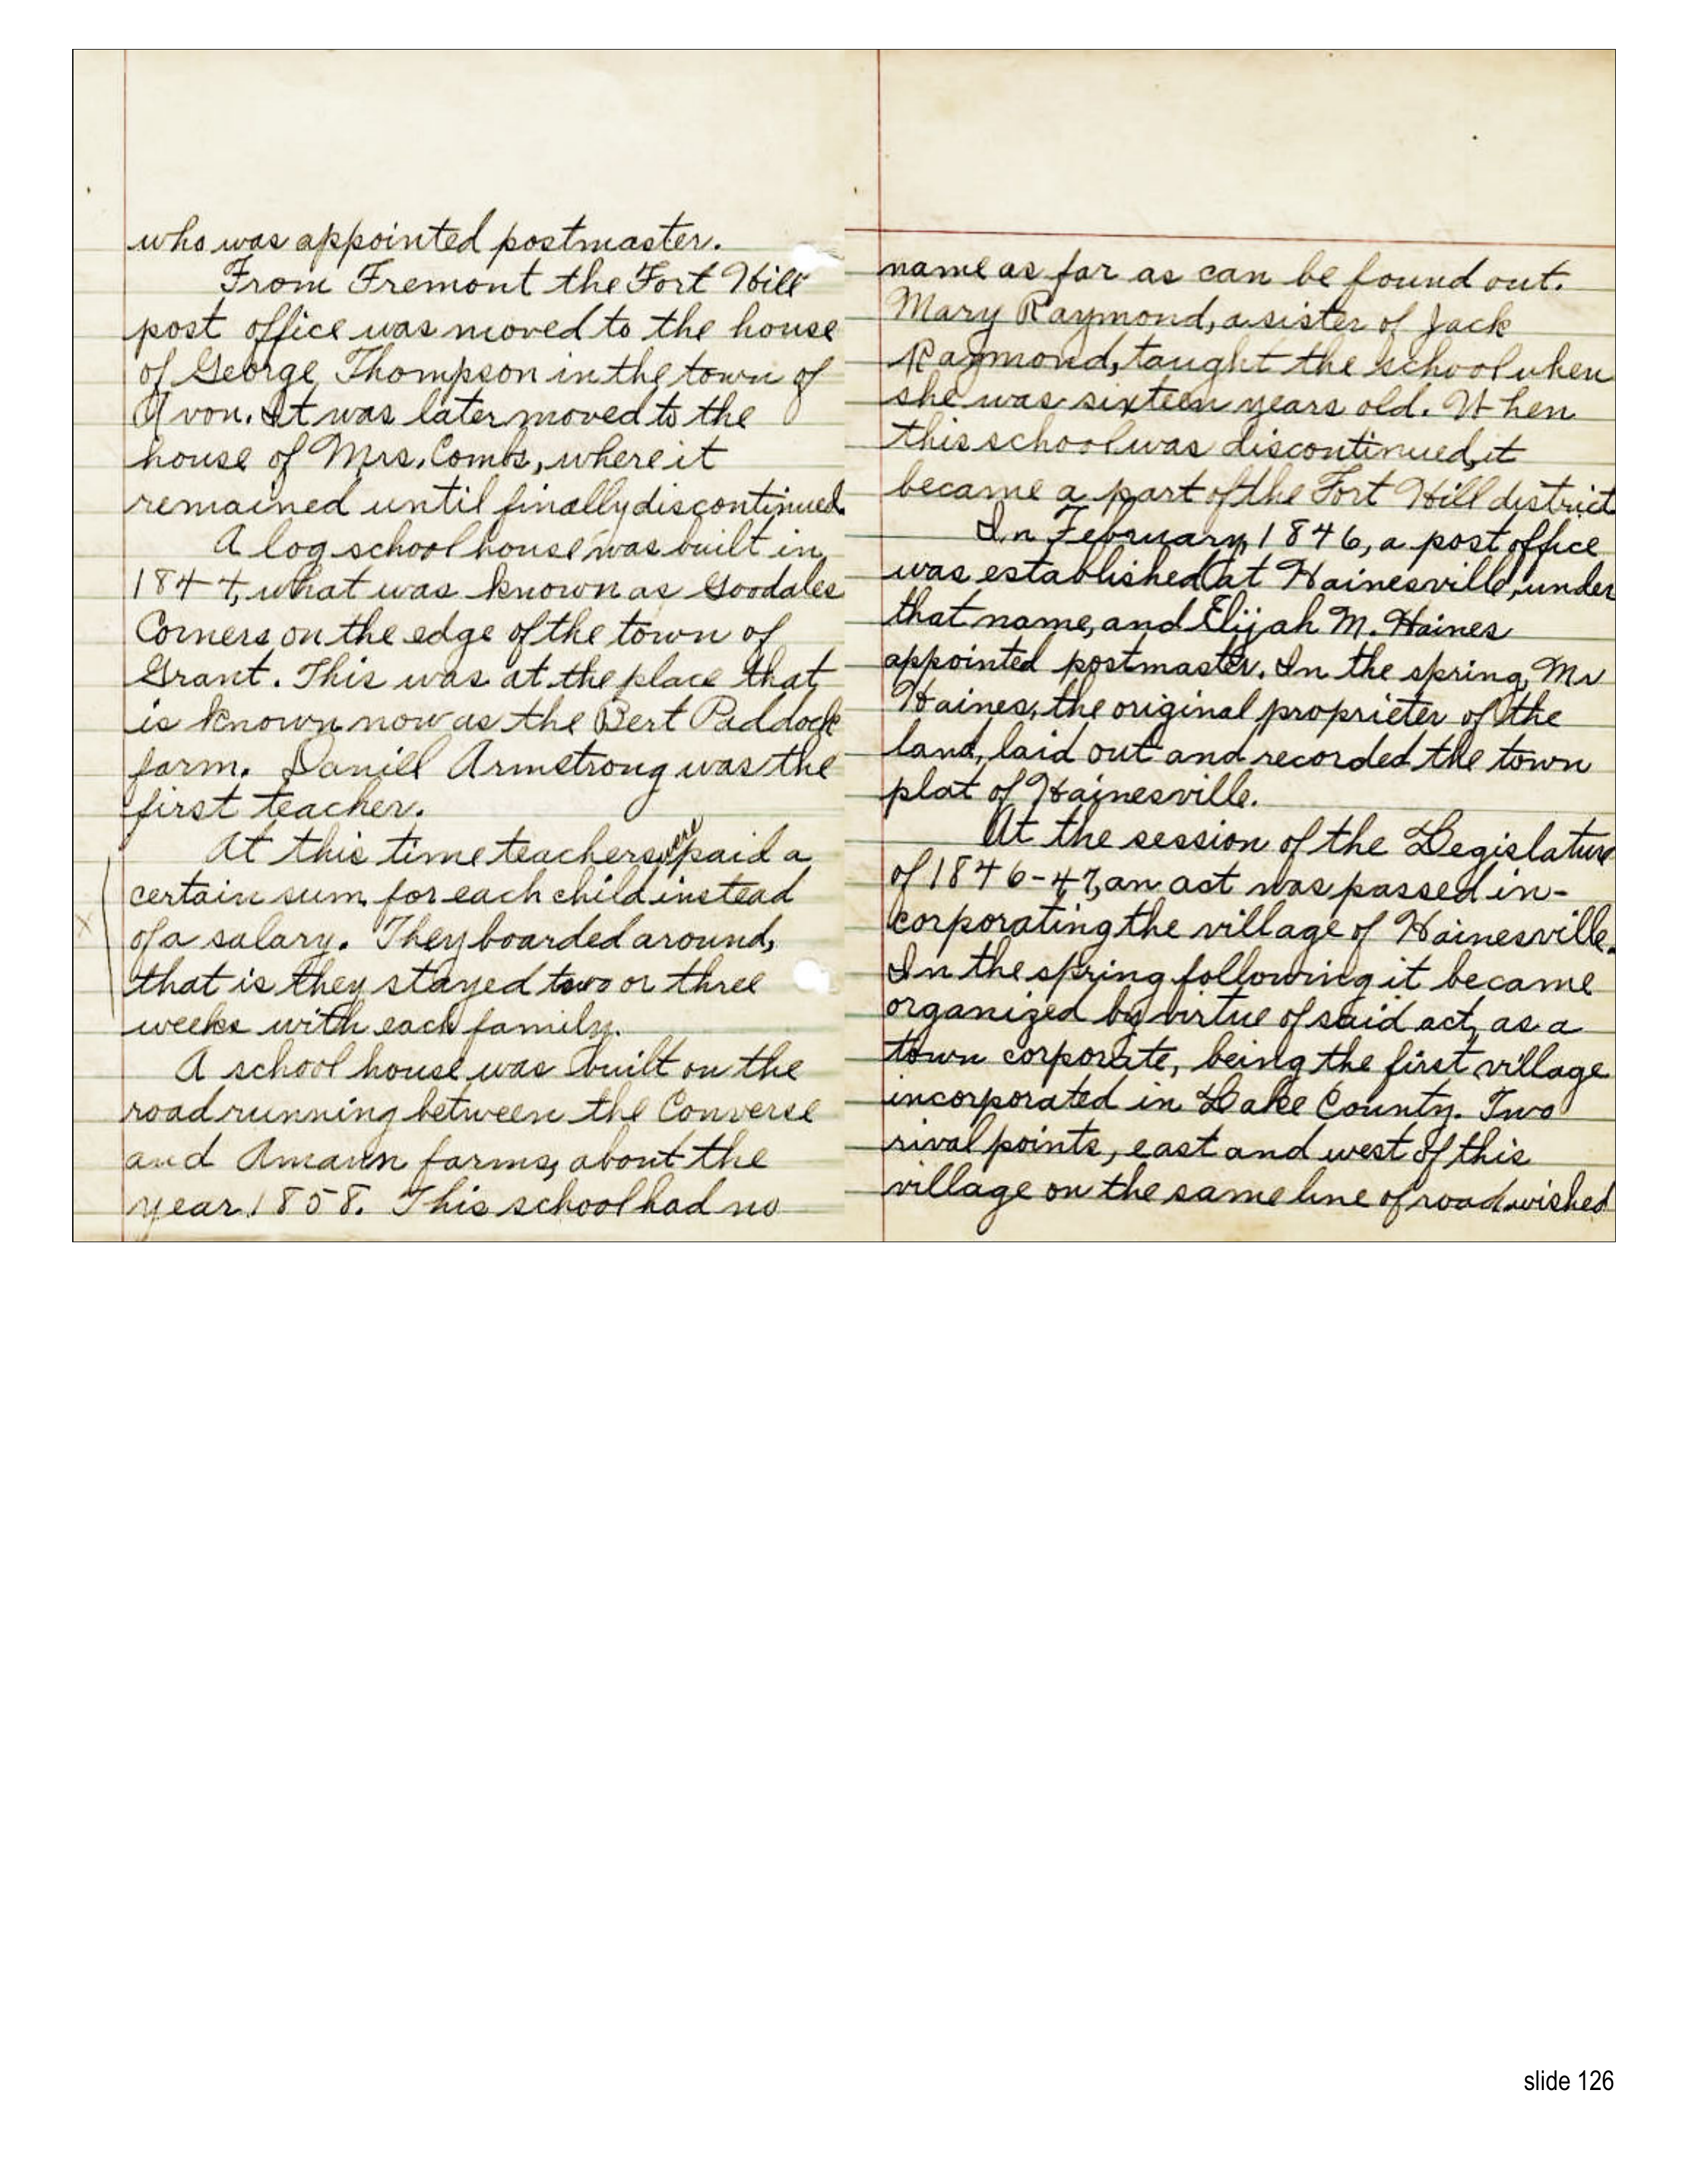 who was appointed postmaster.
From Fremont the Fort Hill
post office was moved to the house
of George Thompson in the town of
Avon. It was later moved to the
house of Mrs. Combs, where it
remained until finally discontinued.
A log school house was built in
1844, what was known as Goodales
Corners on the edge of the town of
Grant. This was at the place that
is known now as the Bert Paddock
farm. Daniel Armstrong was the
first teacher.
At this time teachers were paid a
certain sum for each child instead
of a salary. They boarded around,
that is they stayed two or three
weeks with each family.
A school house was built on the
road running between the Converse
and Amann farms, about the
year 1858. This school had no
name as far as can be found out.
Mary Raymond, a sister of Jack
Raymond, taught the school when
she was sixteen years old. When
this school was discontinued, it
became a part of the Fort Hill district
In February, 1846, a post office
was established at Hainesville, under
that name, and Elijah M. Haines
appointed postmaster. In the spring, Mr
Haines, the original proprieter of the
land, laid out and recorded the town
plat of Hainesville.
At the session of the Legislature
of 1846-47, an act was passed in-
corporating the village of Hainesville.
In the spring following it became
organized by virtue of said act, as a
town corporate, being the first village
incorporated in Lake County. Two
rival points, east and west of this
village on the same line of road wished
slide 126